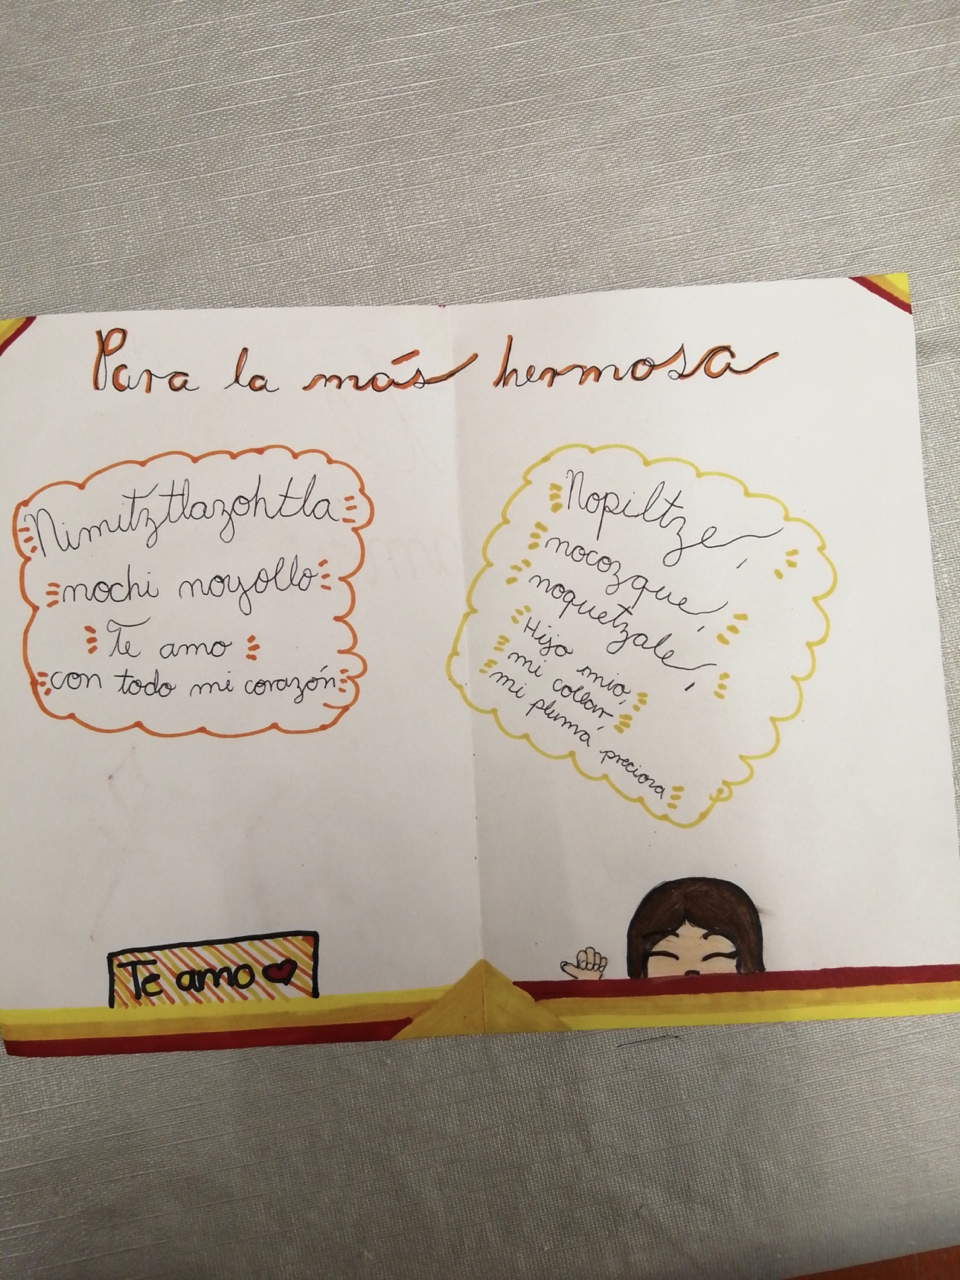 Para la más hermosa
Nimitztlazohtla
nochi noyollo
Te amo
con todo mi corazón
Nopiltze,
nocozque,
noquetzale,
Hijo mio,
mi collar,
mi pluma preciosa
Te amo